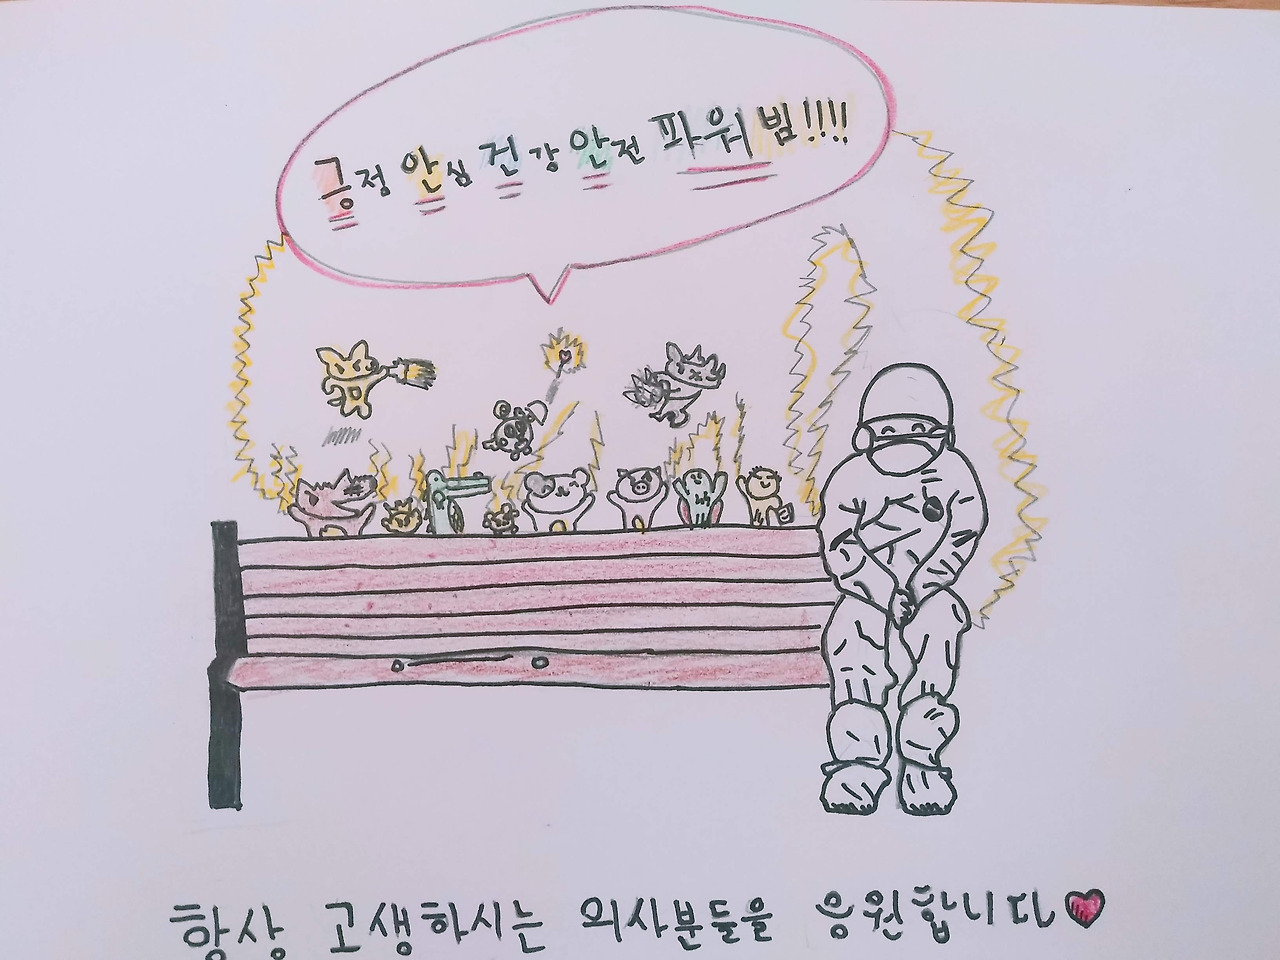 긍정 안심 건강 안전 파워 빔!!!!
항상 고생하시는 의사분들을 응원합니다♥